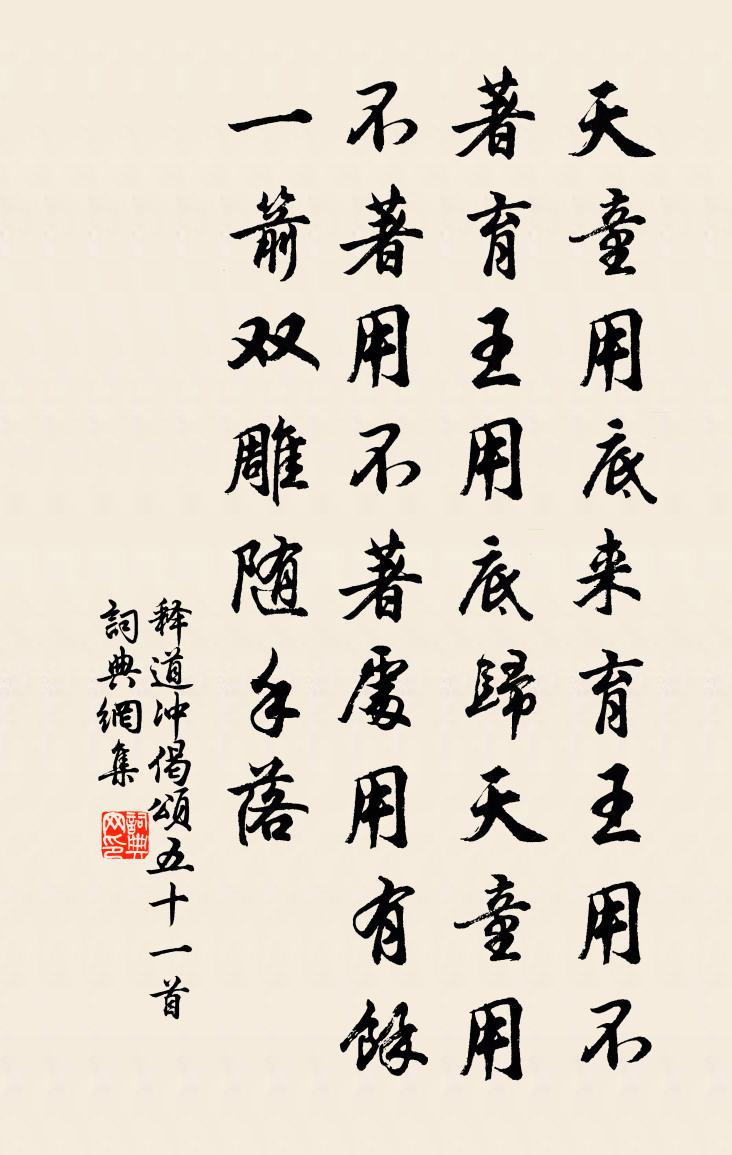 天童用底来育王用不
著育王用底歸天童用
不著用不著處用有餘
一箭双雕随手落
释道冲偈頌五十一首
詞典網集
詞典
网印